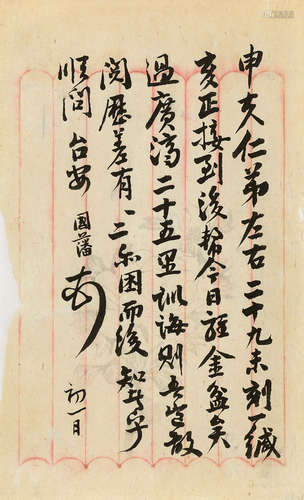 申夫仁弟左右二十九未刻一緘
亥正接到後幫今日金盆矣
過廣濟二十五里訓誨則吾豈敢
閱歷差有一二亦困而後知者乎
順問 台安 國藩 頓
初一日